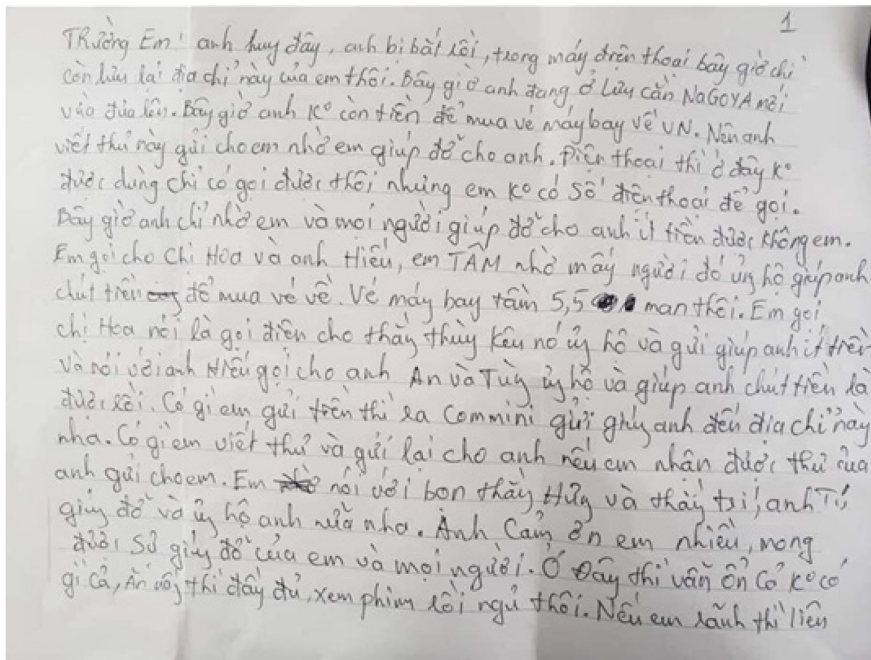 1
TRường Em! anh huy đây, anh bị bắt rồi, trong máy điện thoại bây giờ chỉ
còn lưu lại địa chỉ này của em thôi. Bây giờ anh đang ở Lưu cần NAGOYA mới
vừa đưa lên. Bây giờ anh K° còn tiền để mua vé máy bay về VN. Nên anh
viết thư này gửi cho em nhờ em giúp đỡ cho anh. Điện thoại thì ở đây K°
được dùng chỉ có gọi được thôi nhưng em K° có số điện thoại để gọi.
Bây giờ anh chỉ nhờ em và mọi người giúp đỡ cho anh ít tiền được không em.
Em gọi cho Chị Hoa và anh Hiếu, em TÂM nhờ mấy người đó ủng hộ giúp anh
chút tiền để mua vé về. Vé máy bay tầm 5,5 man thôi. Em gọi
chị Hoa nói là gọi điện cho thằng thùy kêu nó ủng hộ và gửi giúp anh ít tiền
và nói với anh Hiếu gọi cho anh An và Tùng ủng hộ và giúp anh chút tiền là
được rồi. Có gì em gửi tiền thì ra Commini gửi giúp anh đến địa chỉ này
nha. Có gì em viết thư và gửi lại cho anh nếu em nhận được thư của
anh gửi cho em. Em nói với bọn thằng Hưng và thằng tri, anh Tú
giúp đỡ và ủng hộ anh nữa nha. Anh Cảm ơn em nhiều, mong
được sự giúp đỡ của em và mọi người. Ở Đây thì vẫn ổn cả K° có
gì cả, Ăn uống thì đầy đủ, xem phim rồi ngủ thôi. Nếu em rảnh thì liên